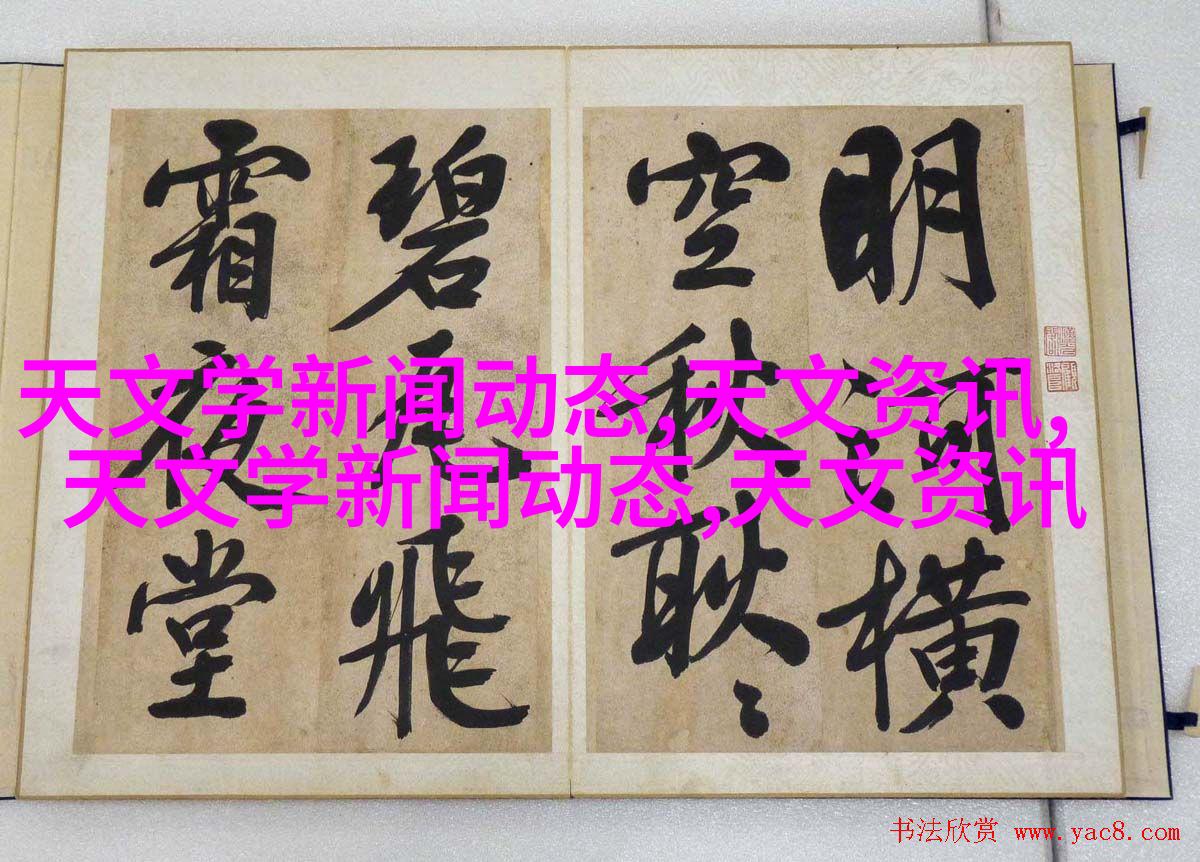 明河橫
空秋耿〻
碧瓦飛
霜夜堂
天文学新闻动态,天文资讯,
天文学新闻动态,天文资讯
书法欣赏 www.yac8.com